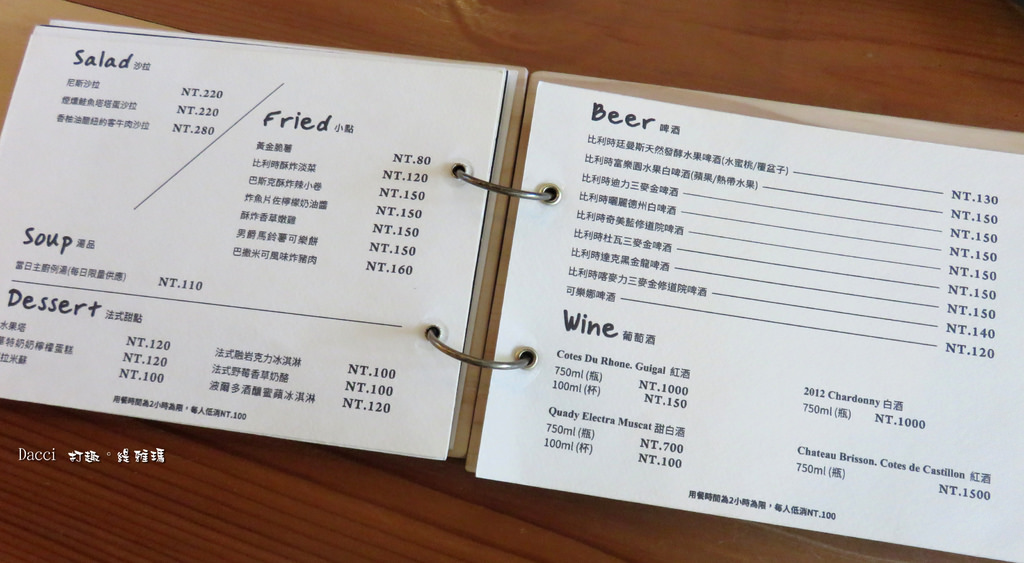 Salad 沙拉
尼斯沙拉 NT.220
煙燻鮭魚塔塔蛋沙拉 NT.220
香柚油醋紐約客牛肉沙拉 NT.280
Fried 小點
黃金脆薯 NT.80
比利時酥炸淡菜 NT.120
巴斯克酥炸辣小卷 NT.150
炸魚片佐檸檬奶油醬 NT.150
酥炸香草嫩雞 NT.150
男爵馬鈴薯可樂餅 NT.150
巴撒米可風味炸豬肉 NT.160
Soup 湯品
當日主廚例湯(每日限量供應) NT.110
Dessert 法式甜點
水果塔 NT.120
特奶奶檸檬蛋糕 NT.120
拉米蘇 NT.100
法式融岩克力冰淇淋 NT.100
法式野莓香草奶酪 NT.100
波爾多酒釀蜜蘋冰淇淋 NT.120
用餐時間為2小時為限，每人低消NT.100
Beer 啤酒
比利時廷曼斯天然發酵水果啤酒(水蜜桃/覆盆子) NT.130
比利時富樂園水果白啤酒(蘋果/熱帶水果) NT.150
比利時迪力三麥金啤酒 NT.150
比利時曬麗德州白啤酒 NT.150
比利時奇美藍修道院啤酒 NT.150
比利時杜瓦三麥金啤酒 NT.150
比利時達克黑金龍啤酒 NT.150
比利時喀麥力三麥金修道院啤酒 NT.140
可樂娜啤酒 NT.120
Wine 葡萄酒
Cotes Du Rhone. Guigal 紅酒
750ml (瓶) NT.1000
100ml (杯) NT.150
Quady Electra Muscat 甜白酒
750ml (瓶) NT.700
100ml (杯) NT.100
2012 Chardonny 白酒
750ml (瓶) NT.1000
Chateau Brisson. Cotes de Castillon 紅酒
750ml (瓶) NT.1500
用餐時間為2小時為限，每人低消NT.100
Dacci 打趣。緹雅瑪